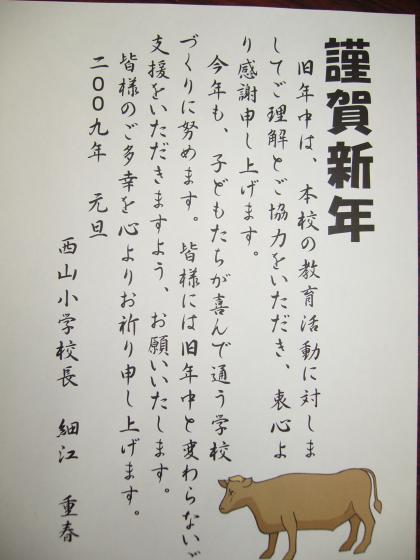 謹賀新年
旧年中は、本校の教育活動に対しま
してご理解とご協力をいただき、衷心よ
り感謝申し上げます。
今年も、子どもたちが喜んで通う学校
づくりに努めます。皆様には旧年中と変わらないご
支援をいただきますよう、お願いいたします。
皆様のご多幸を心よりお祈り申し上げます。
二〇〇九年 元旦
西山小学校長 細江 重春